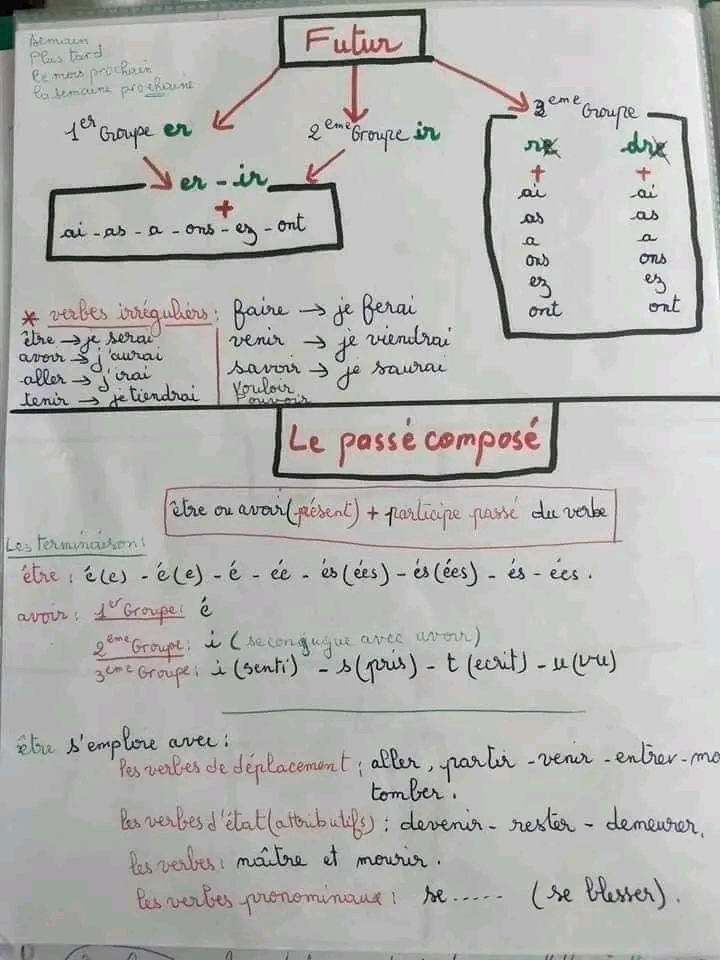 Demain
Plus tard
le mois prochain
la semaine prochaine
Futur
1er Groupe er
2eme Groupe ir
3eme Groupe
er - ir
+
ai - as - a - ons - ez - ont
re dre
+ +
ai ai
as as
a a
ons ons
ez ez
ont ont
* verbes irréguliers :
être → je serai
avoir → j'aurai
aller → j'irai
tenir → je tiendrai
faire → je ferai
venir → je viendrai
savoir → je saurai
Vouloir
Pouvoir
Le passé composé
être ou avoir (présent) + participe passé du verbe
Les terminaison :
être : é(e) - é(e) - é - ée - és(ées) - és(ées) - és - ées.
avoir : 1er Groupe : é
2eme Groupe : i (se conjugue avec avoir)
3eme Groupe : i (senti) - s (pris) - t (ecrit) - u (vu)
être s'emploie avec :
les verbes de déplacement : aller, partir - venir - entrer - mo
tomber.
les verbes d'état (attributifs) : devenir - rester - demeurer,
les verbes : naître et mourir.
les verbes pronominaux : se ..... (se blesser).